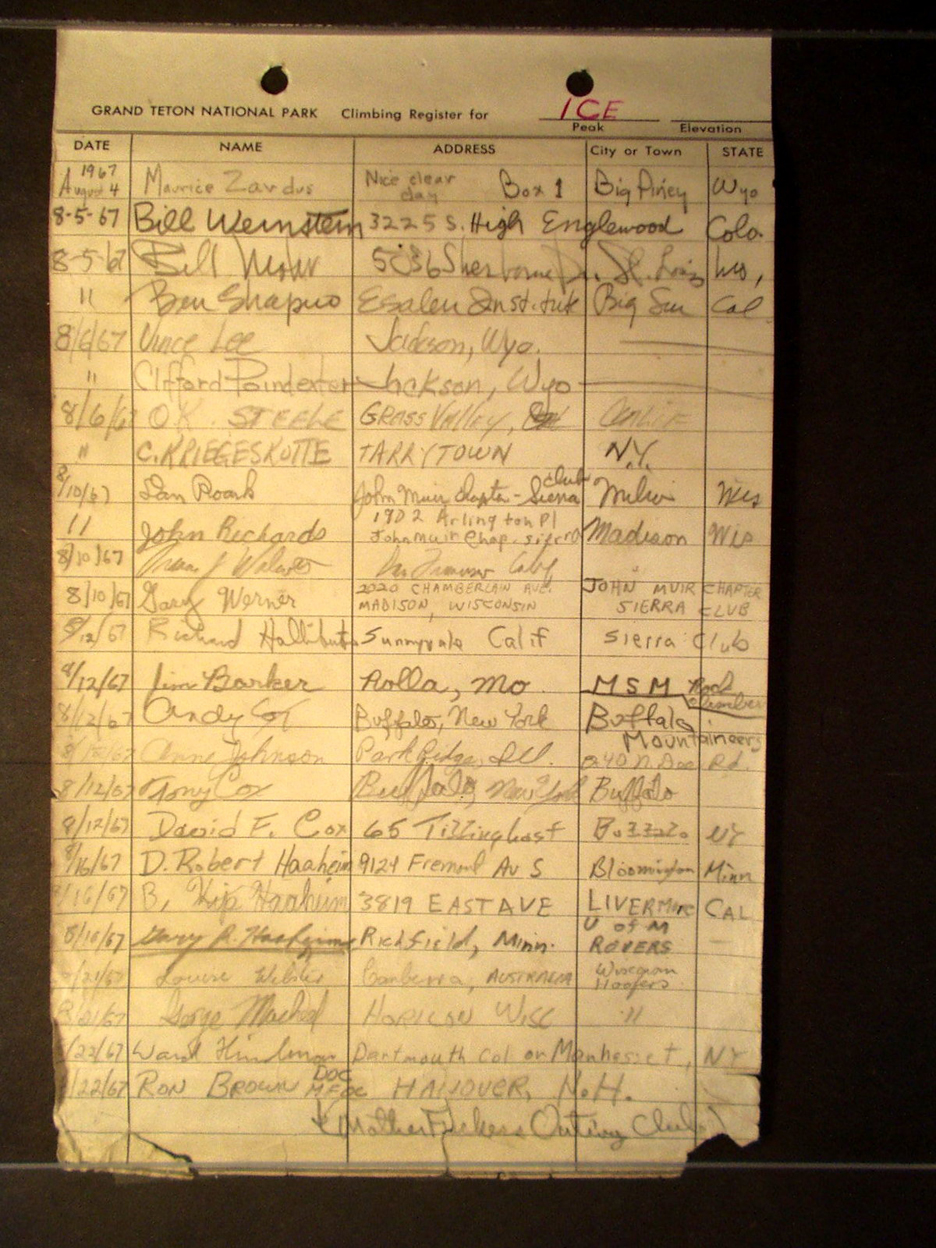 GRAND TETON NATIONAL PARK Climbing Register for ICE
Peak Elevation
DATE NAME ADDRESS City or Town STATE
1967 August 4 Maurice Zardus Nice clear day Box 1 Big Piney Wyo
8-5-67 Bill Weinstein 3225 S. High Englewood Colo.
8-5-67 Bill 5036 Sherborne Dr. St. Louis
11 Ben Shapiro Esalen Institute Big Sur Cal
8/6/67 Vince Lee Jackson, Wyo.
" Clifford Poindexter Jackson, Wyo
8/6/67 O.K. STEELE GRASS VALLEY, Calif
" C. KRIEGESKOTTE TARRYTOWN N.Y.
8/10/67 Dan Roark John Muir Chapter - Sierra club Milw Wis
11 John Richards 1902 Arlington Pl John Muir Chap. Sierra Madison Wis
8/10/67
8/10/67 Gary Werner 2020 CHAMBERLAIN AVE. MADISON, WISCONSIN JOHN MUIR CHAPTER SIERRA CLUB
8/12/67 Richard Hallibut Sunnyvale Calif Sierra Club
8/12/67 Jim Barker Rolla, Mo MSM Rock Climbers
8/12/67 Andy Cox Buffalo, New York Buffalo Mountaineers
8/12/67 Anne Johnson Park Ridge, Ill. Rd.
8/12/67 Tony Cox Buffalo, New York Buffalo
8/12/67 David F. Cox 65 Tillinghast Buffalo NY
8/16/67 D. Robert Haaheim 9124 Fremont Av S Bloomington Minn
8/16/67 B. Kip Haaheim 3819 EAST AVE LIVERMORE CAL
8/16/67 Gary R. Richfield, Minn. U of M ROVERS
8/21/67 Louise Webster Canberra, AUSTRALIA Hoofers
8/21/67 HORICON WISC "
8/22/67 Ward Hindman Dartmouth Col or Manhasset, NY
8/22/67 RON BROWN DOC MFOC HANOVER, N.H.
(Mother Fuckers Outing Club)